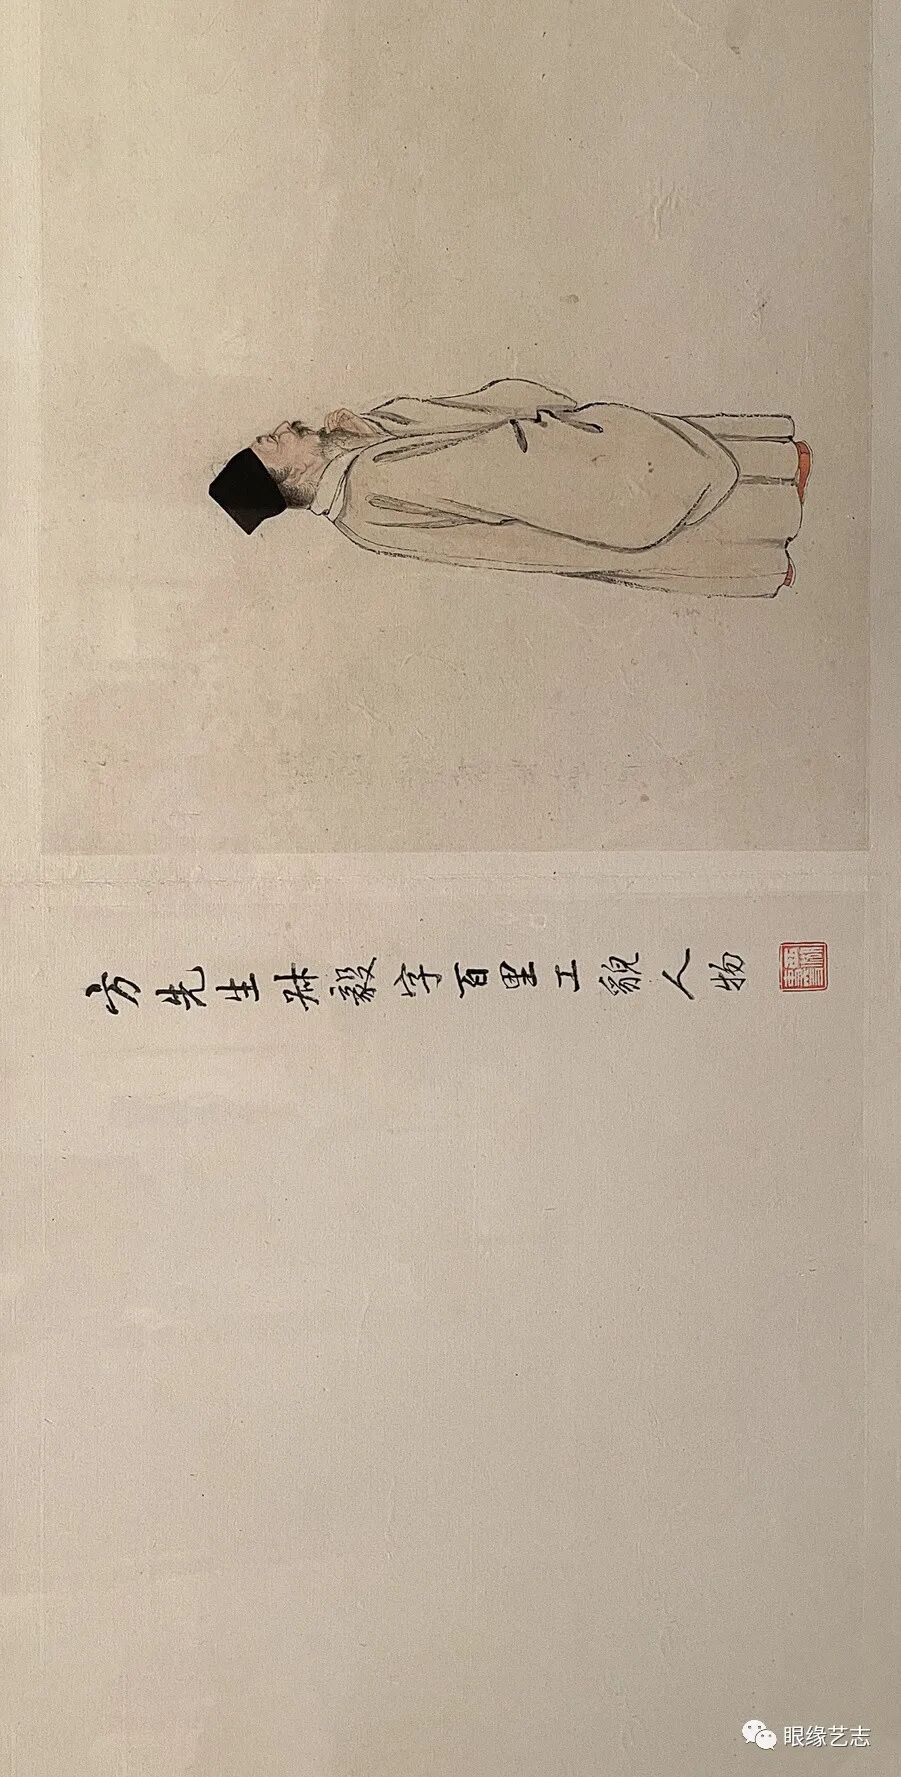 方先生叔毅字百里工貌人物
眼缘艺志